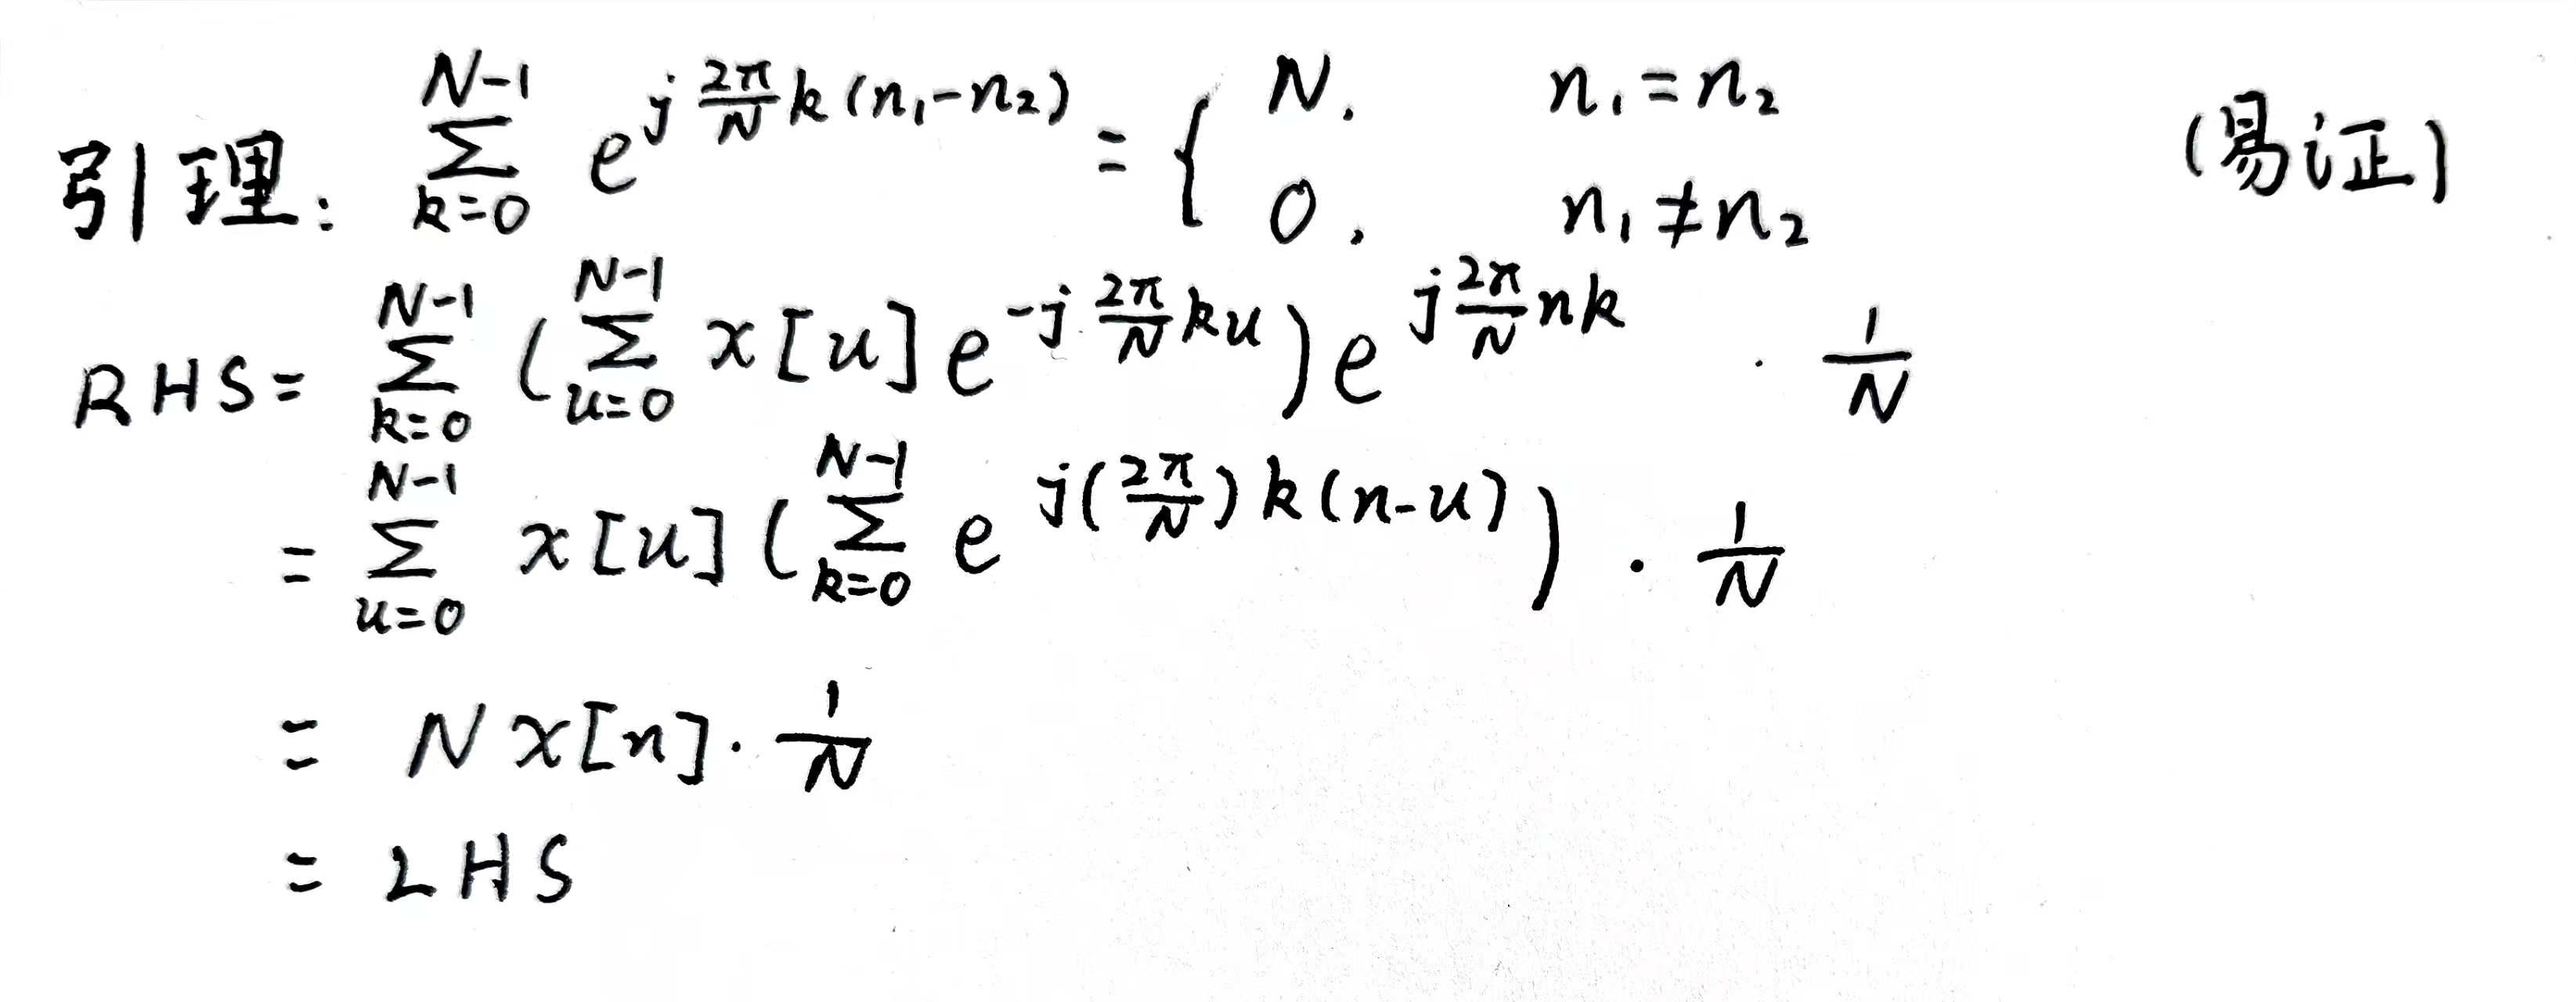 引理: \sum_{k=0}^{N-1} e^{j\frac{2\pi}{N}k(n_1-n_2)} = \begin{cases} N, & n_1=n_2 \\ 0, & n_1 \neq n_2 \end{cases} (易证)
RHS = \sum_{k=0}^{N-1} (\sum_{u=0}^{N-1} x[u] e^{-j\frac{2\pi}{N}ku}) e^{j\frac{2\pi}{N}nk} \cdot \frac{1}{N}
= \sum_{u=0}^{N-1} x[u] (\sum_{k=0}^{N-1} e^{j(\frac{2\pi}{N})k(n-u)}) \cdot \frac{1}{N}
= N x[n] \cdot \frac{1}{N}
= LHS